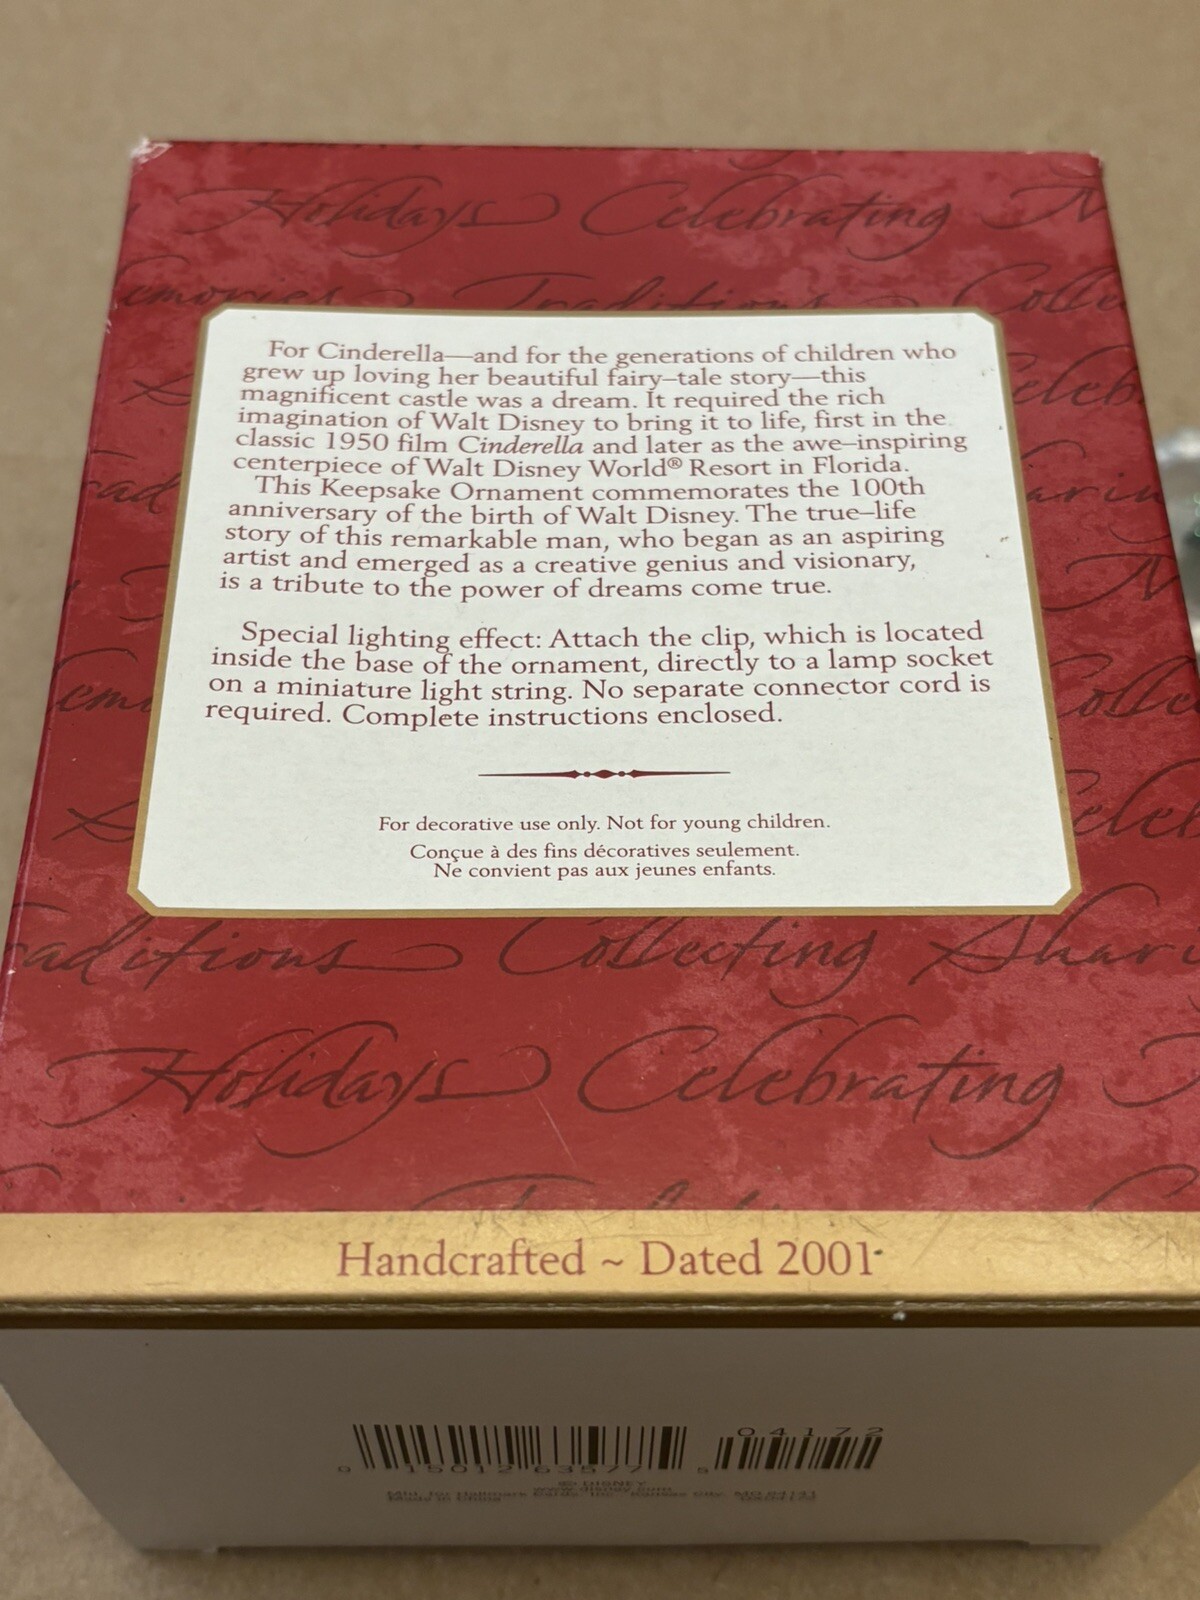 Holidays Celebrating
emories Traditions Colle
For Cinderella—and for the generations of children who
grew up loving her beautiful fairy–tale story—this
magnificent castle was a dream. It required the rich
imagination of Walt Disney to bring it to life, first in the
classic 1950 film Cinderella and later as the awe–inspiring
centerpiece of Walt Disney World® Resort in Florida.
This Keepsake Ornament commemorates the 100th
anniversary of the birth of Walt Disney. The true–life
story of this remarkable man, who began as an aspiring
artist and emerged as a creative genius and visionary,
is a tribute to the power of dreams come true.
Special lighting effect: Attach the clip, which is located
inside the base of the ornament, directly to a lamp socket
on a miniature light string. No separate connector cord is
required. Complete instructions enclosed.
For decorative use only. Not for young children.
Conçue à des fins décoratives seulement.
Ne convient pas aux jeunes enfants.
raditions Collecting Shari
Holidays Celebrating
Handcrafted ~ Dated 2001
04172
0 15012 63577 5
© DISNEY
www.disney.com
Mfd. for Hallmark Cards, Inc., Kansas City, MO 64141
Made in China